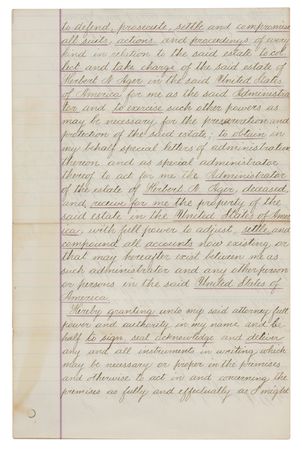 to defend, prosecute, settle and compromise
all suits, actions and proceedings of every
kind in relation to the said estate to col
lect and take charge of the said estate of
Herbert N. Ager in the said United States
of America for me as the said Administra
tor and to exercise such other powers as
may be necessary for the preservation and
protection of the said estate; to obtain in
my behalf special letters of administration
thereon and as special administrator
thereof to act for me the Administrator
of the estate of Herbert N. Ager, deceased,
and receive for me the property of the
said estate in the United States of Amer
ica, with full power to adjust, settle and
compound all accounts now existing, or
that may hereafter exist between me as
such administrator and any other person
or persons in the said United States of
America.
Hereby granting unto my said attorney full
power and authority in my name and be
half to sign, seal acknowledge and deliver
any and all instruments in writing which
may be necessary or proper in the premises
and otherwise to act in and concerning the
premises as fully and effectually as I might